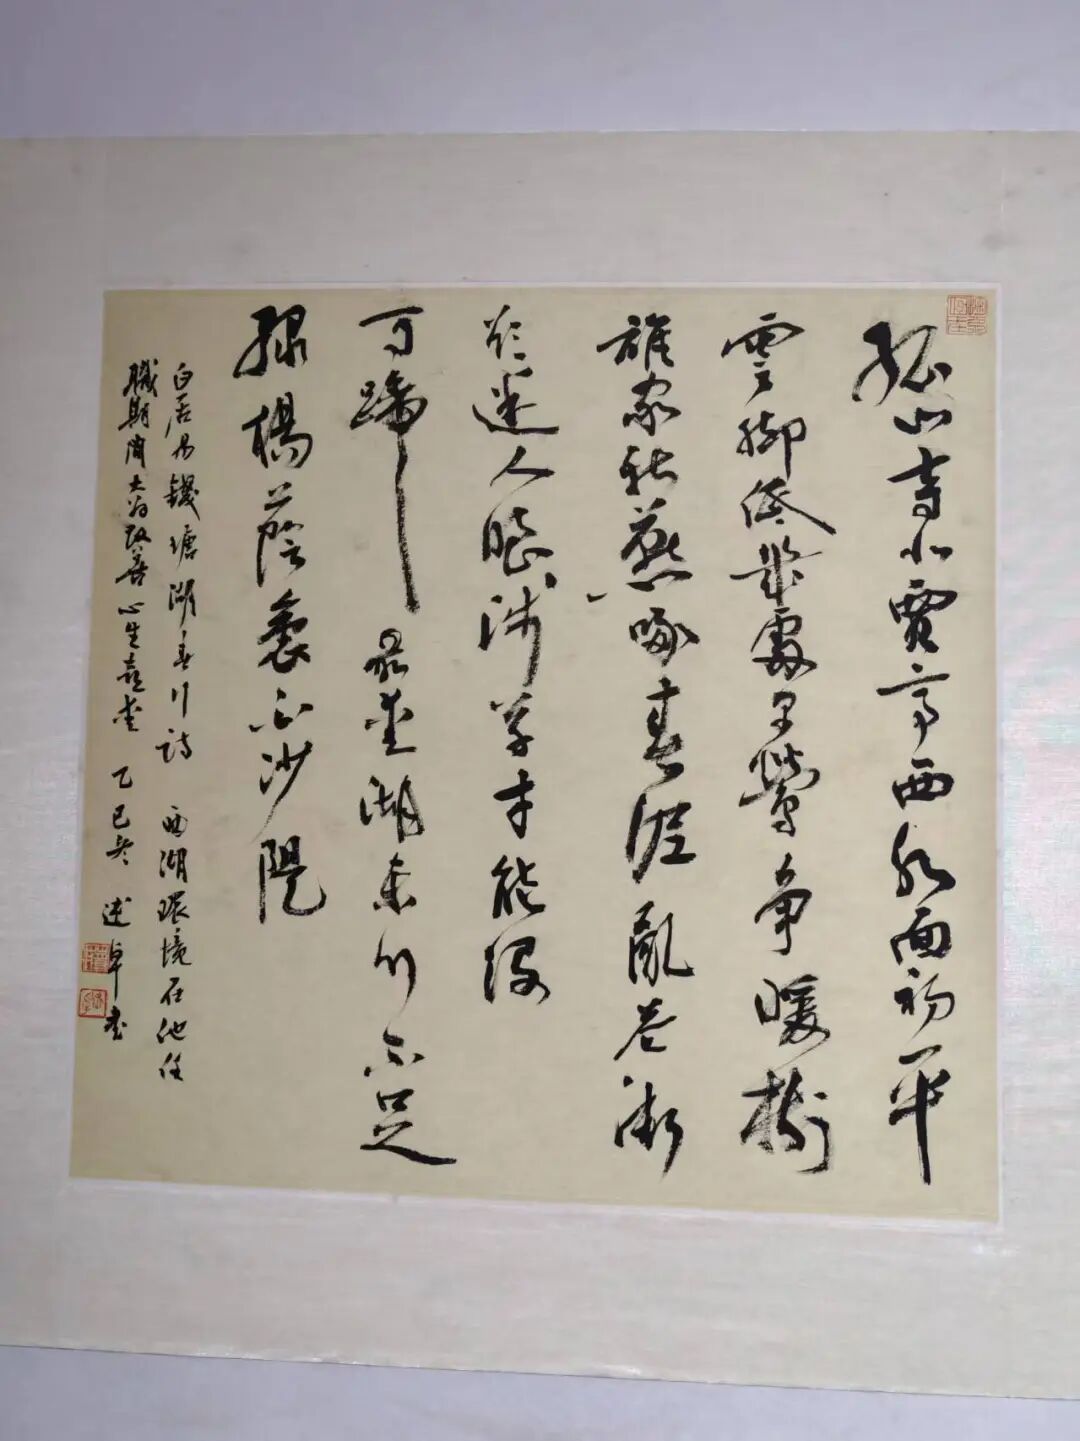 孤山寺北賈亭西水面初平
雲腳低幾處早鶯争暖樹
誰家新燕啄春泥亂花漸
欲迷人眼淺草才能没
馬蹄最愛湖東行不足
綠楊蔭裏白沙隄
白居易錢塘湖春行詩 西湖環境在他任
職期间大为改善心生喜愛 乙巳冬 述卓书